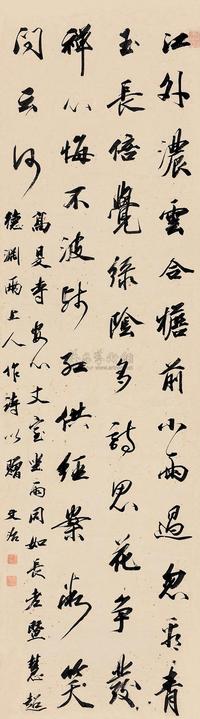 江外濃雲合檐前小雨過忽看青
玉長倍覺綠陰多詩思花爭發
禪心海不波紅供經案微笑
問云何
高旻寺安心丈室坐雨同如長老暨慧超
德淵兩上人作詩以贈 文治